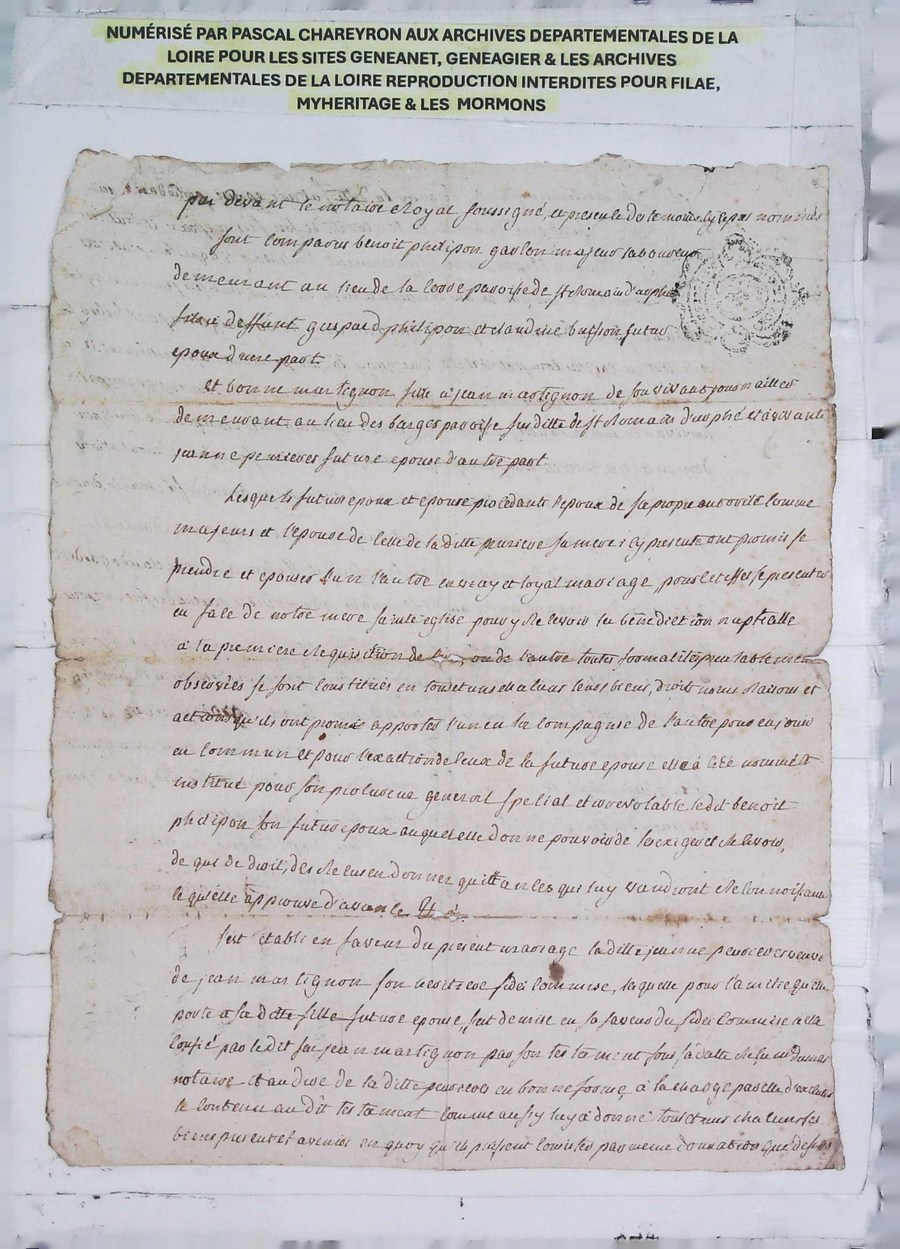 NUMÉRISÉ PAR PASCAL CHAREYRON AUX ARCHIVES DEPARTEMENTALES DE LA
LOIRE POUR LES SITES GENEANET, GENEAGIER & LES ARCHIVES
DEPARTEMENTALES DE LA LOIRE REPRODUCTION INTERDITES POUR FILAE,
MYHERITAGE & LES MORMONS
par devant le notaire Royal soussigné et presence des temoins cy apres nommés
sont comparus benoit philipon garcon majeur laboureur
demeurant au lieu de la paroisse de st Romain d'urphé
fils a deffunt gaspard philipon et claudine buisson futur
epoux d'une part
et bonne martignon fille a jean martignon de son vivant journaillier
demeurant au lieu des barges paroisse susditte de st Romain d'urphé et a vivante
jeanne future epouse d'autre part
Lesquels futurs epoux et epouse procedants l'epoux de sa propre authorité comme
majeurs et l'epouse de celle de la ditte sa mere icy presente ont promis se
prendre et epouser l'un l'autre en vray et loyal mariage, pour cet effet se presenter
en face de notre mere sainte eglise pour y Recevoir la benediction nuptialle
a la premiere Requisition de l'un ou de l'autre toutes formalités prealablement
observées se sont constitués en tous et uns chacuns leurs biens, droits noms Raisons et
actions qu'ils ont promis apporter l'un en la compagnie de l'autre pour en jouir
en commun et pour l'exaction de ceux de la future epouse elle a créé nommé et
institué pour son procureur general special et irrevocable le dit benoit
philipon son futur epoux auquel elle donne pouvoir de les exiger et Recevoir,
de qui de droit, des Receus en donner quittances qui luy vaudront Reconnoissance
ce qu'elle approuve d'avance
s'est établi en faveur du present mariage la ditte jeanne veuve
de jean martignon son heritiere fidei commise, laquelle pour l'amitié qu'elle
porte a sa ditte fille future epouse, s'est demise en sa faveur du fidei commis a elle
confié par le dit feu jean martignon par son testament sous sa datte Reçu
notaire et au dire de la ditte en bonne forme, a la charge par elle d'executer
le contenu au dit testament comme aussy luy a donné tous et uns chacuns ses
biens present et avenir en quoy qu'ils puissent consister par meme donnation que dessus